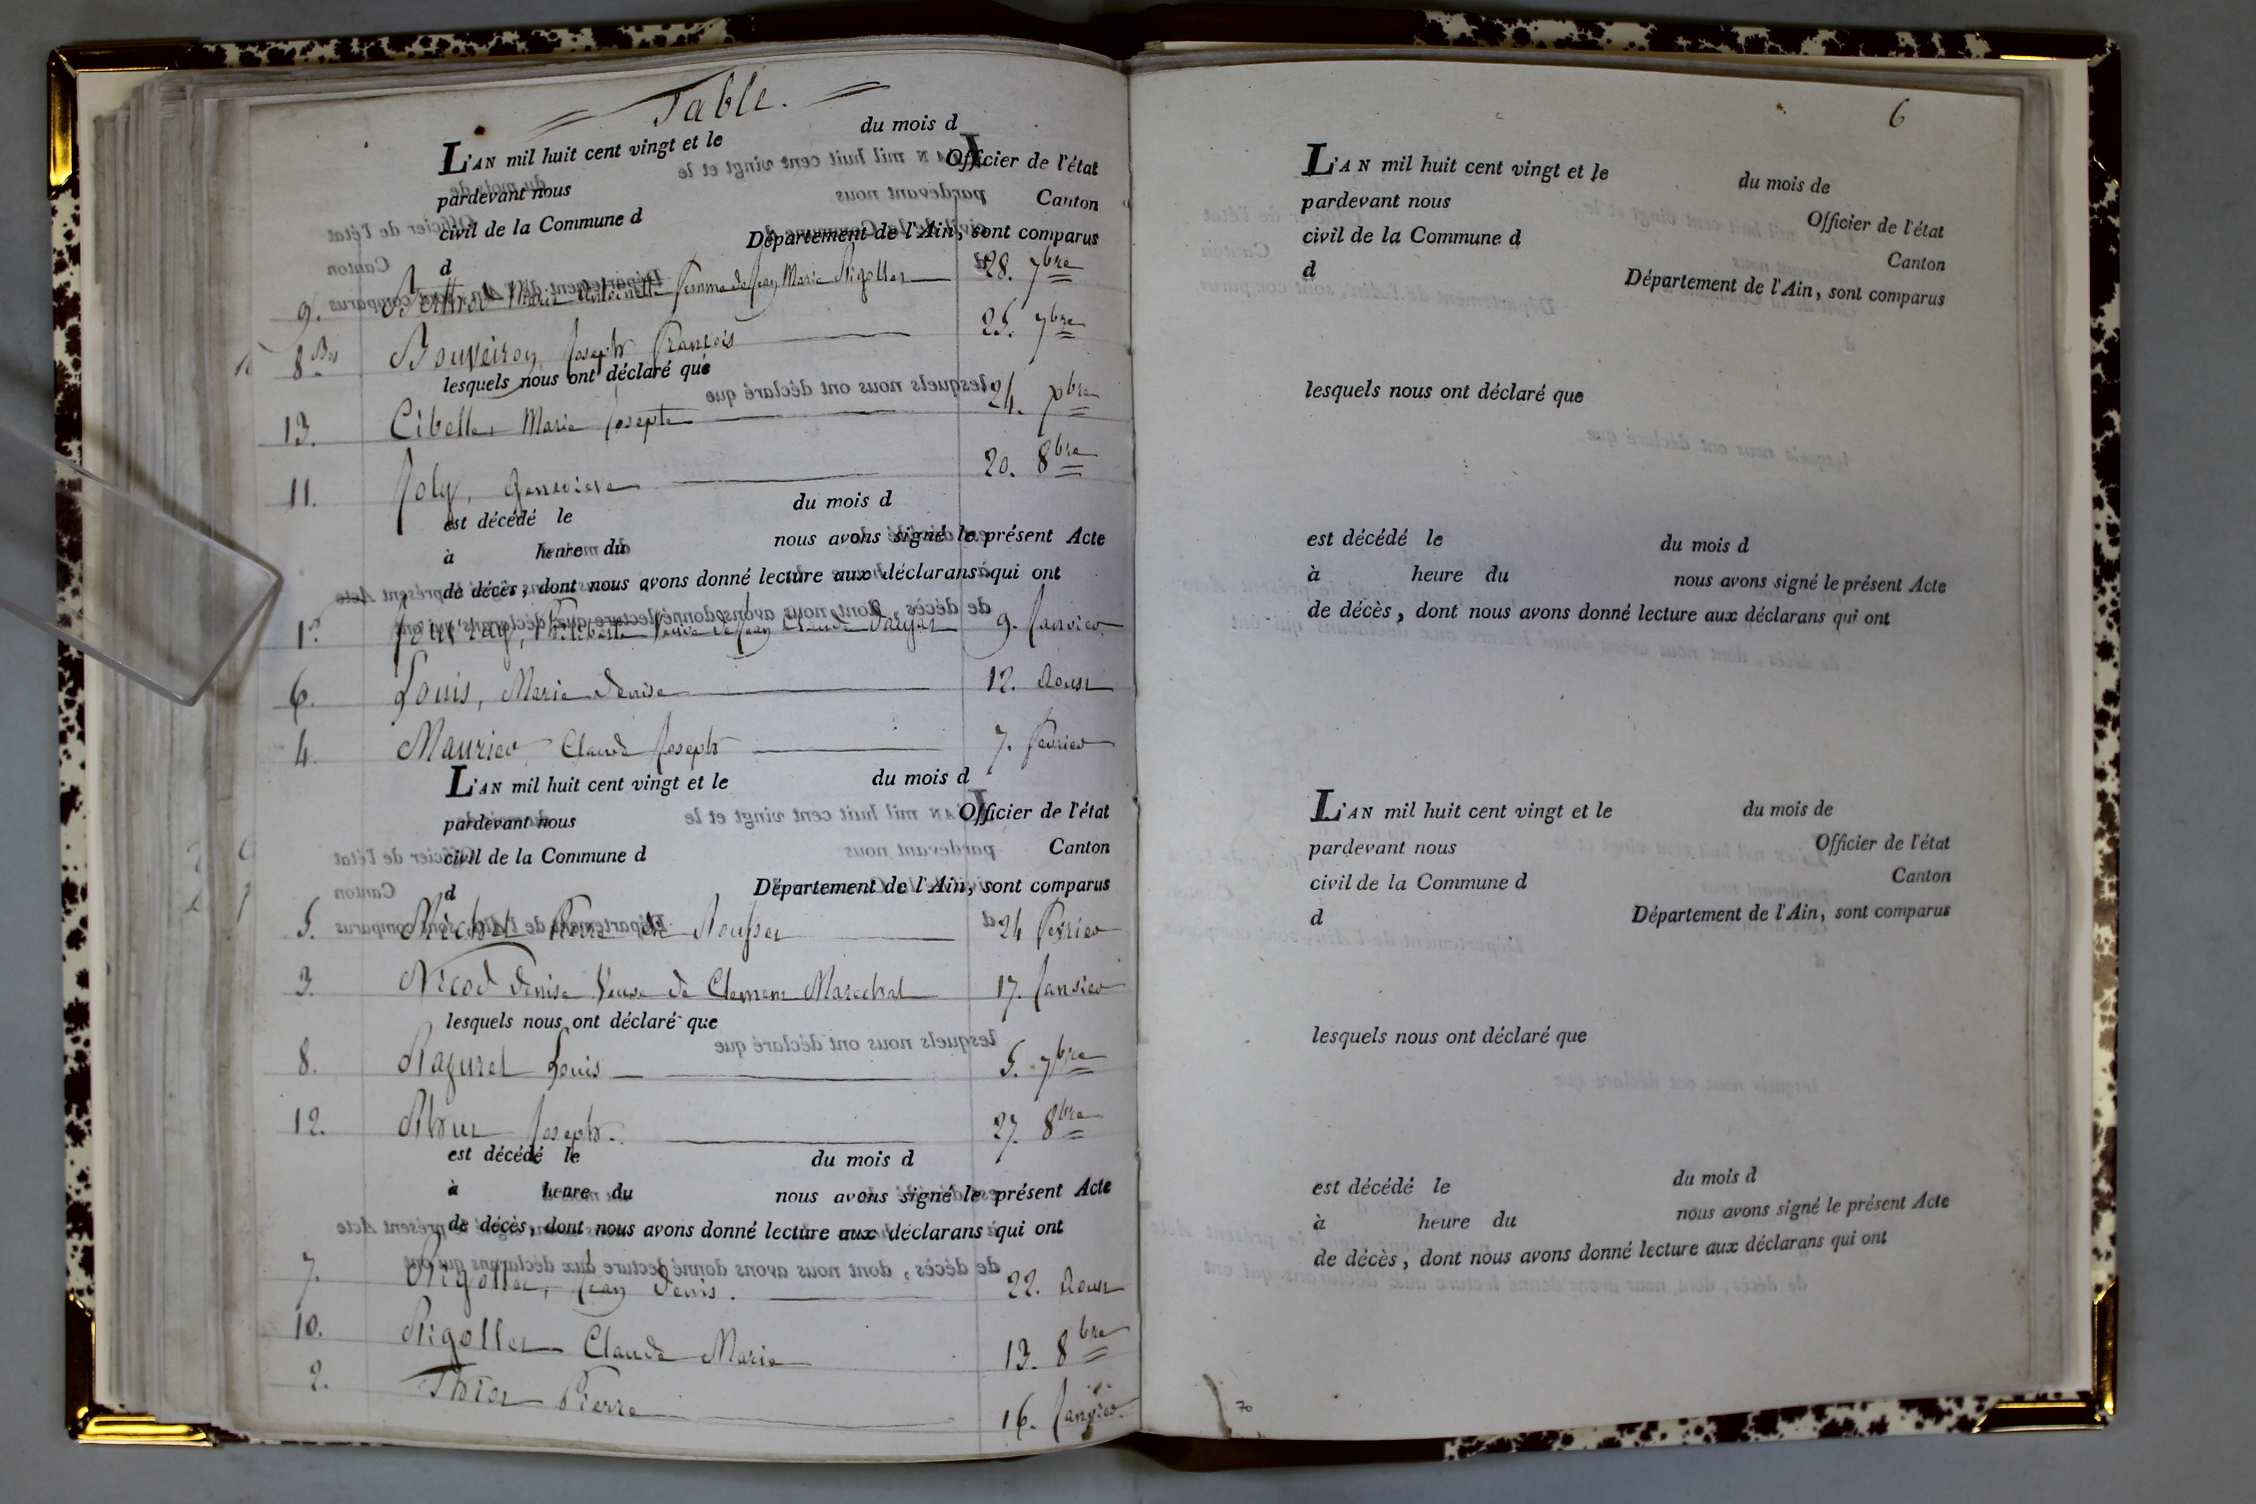 Table.
L'AN mil huit cent vingt et le du mois d
pardevant nous Officier de l'état
civil de la Commune d Canton
d Département de l'Ain, sont comparus
9. Marie Antoinette femme de Jean Marie Rigollet 28. 7bre
8 Bis Bouveiron Joseph François 25. 7bre
lesquels nous ont déclaré que
13. Cibelle, Marie Josepte 24. Xbre
11. Joly, Genevieve 20. 8bre
est décédé le du mois d
à heure du nous avons signé le présent Acte
de décès, dont nous avons donné lecture aux déclarans qui ont
1er Philiberte Veuve de Jean Claude 9. Janvier
6. Louis, Marie Denise 12. Aoust
4. Maurier, Claude Joseph 7. Fevrier
L'AN mil huit cent vingt et le du mois d
pardevant nous Officier de l'état
civil de la Commune d Canton
d Département de l'Ain, sont comparus
5. Pierre 24 Fevrier
3. Nicod Denise Veuve de Clement Marechal 17. Janvier
lesquels nous ont déclaré que
8. Raguret Louis 5. 7bre
12. Joseph. 27. 8bre
est décédé le du mois d
à heure du nous avons signé le présent Acte
de décès, dont nous avons donné lecture aux déclarans qui ont
7. Rigollet, Jean Denis. 22. Aoust
10. Rigollet Claude Marie 13. 8bre
2. Pierre 16. Janvier
6
L'AN mil huit cent vingt et le du mois de
pardevant nous Officier de l'état
civil de la Commune d Canton
d Département de l'Ain, sont comparus
lesquels nous ont déclaré que
est décédé le du mois d
à heure du nous avons signé le présent Acte
de décès, dont nous avons donné lecture aux déclarans qui ont
L'AN mil huit cent vingt et le du mois de
pardevant nous Officier de l'état
civil de la Commune d Canton
d Département de l'Ain, sont comparus
lesquels nous ont déclaré que
est décédé le du mois d
à heure du nous avons signé le présent Acte
de décès, dont nous avons donné lecture aux déclarans qui ont
70